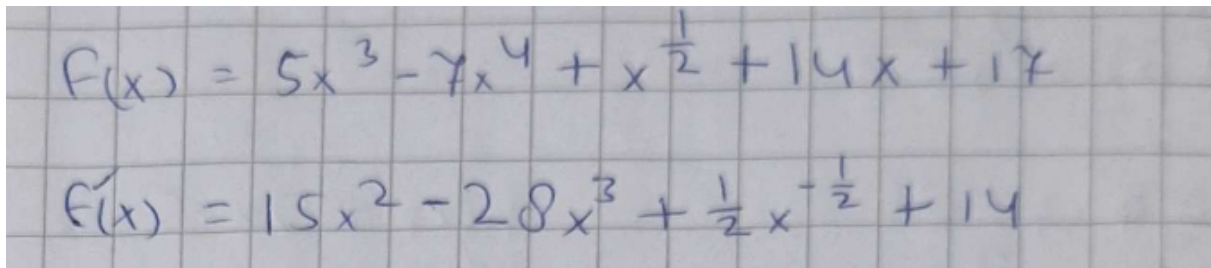 f(x) = 5x³ - 7x⁴ + x^(1/2) + 14x + 17
f'(x) = 15x² - 28x³ + 1/2 x^(-1/2) + 14